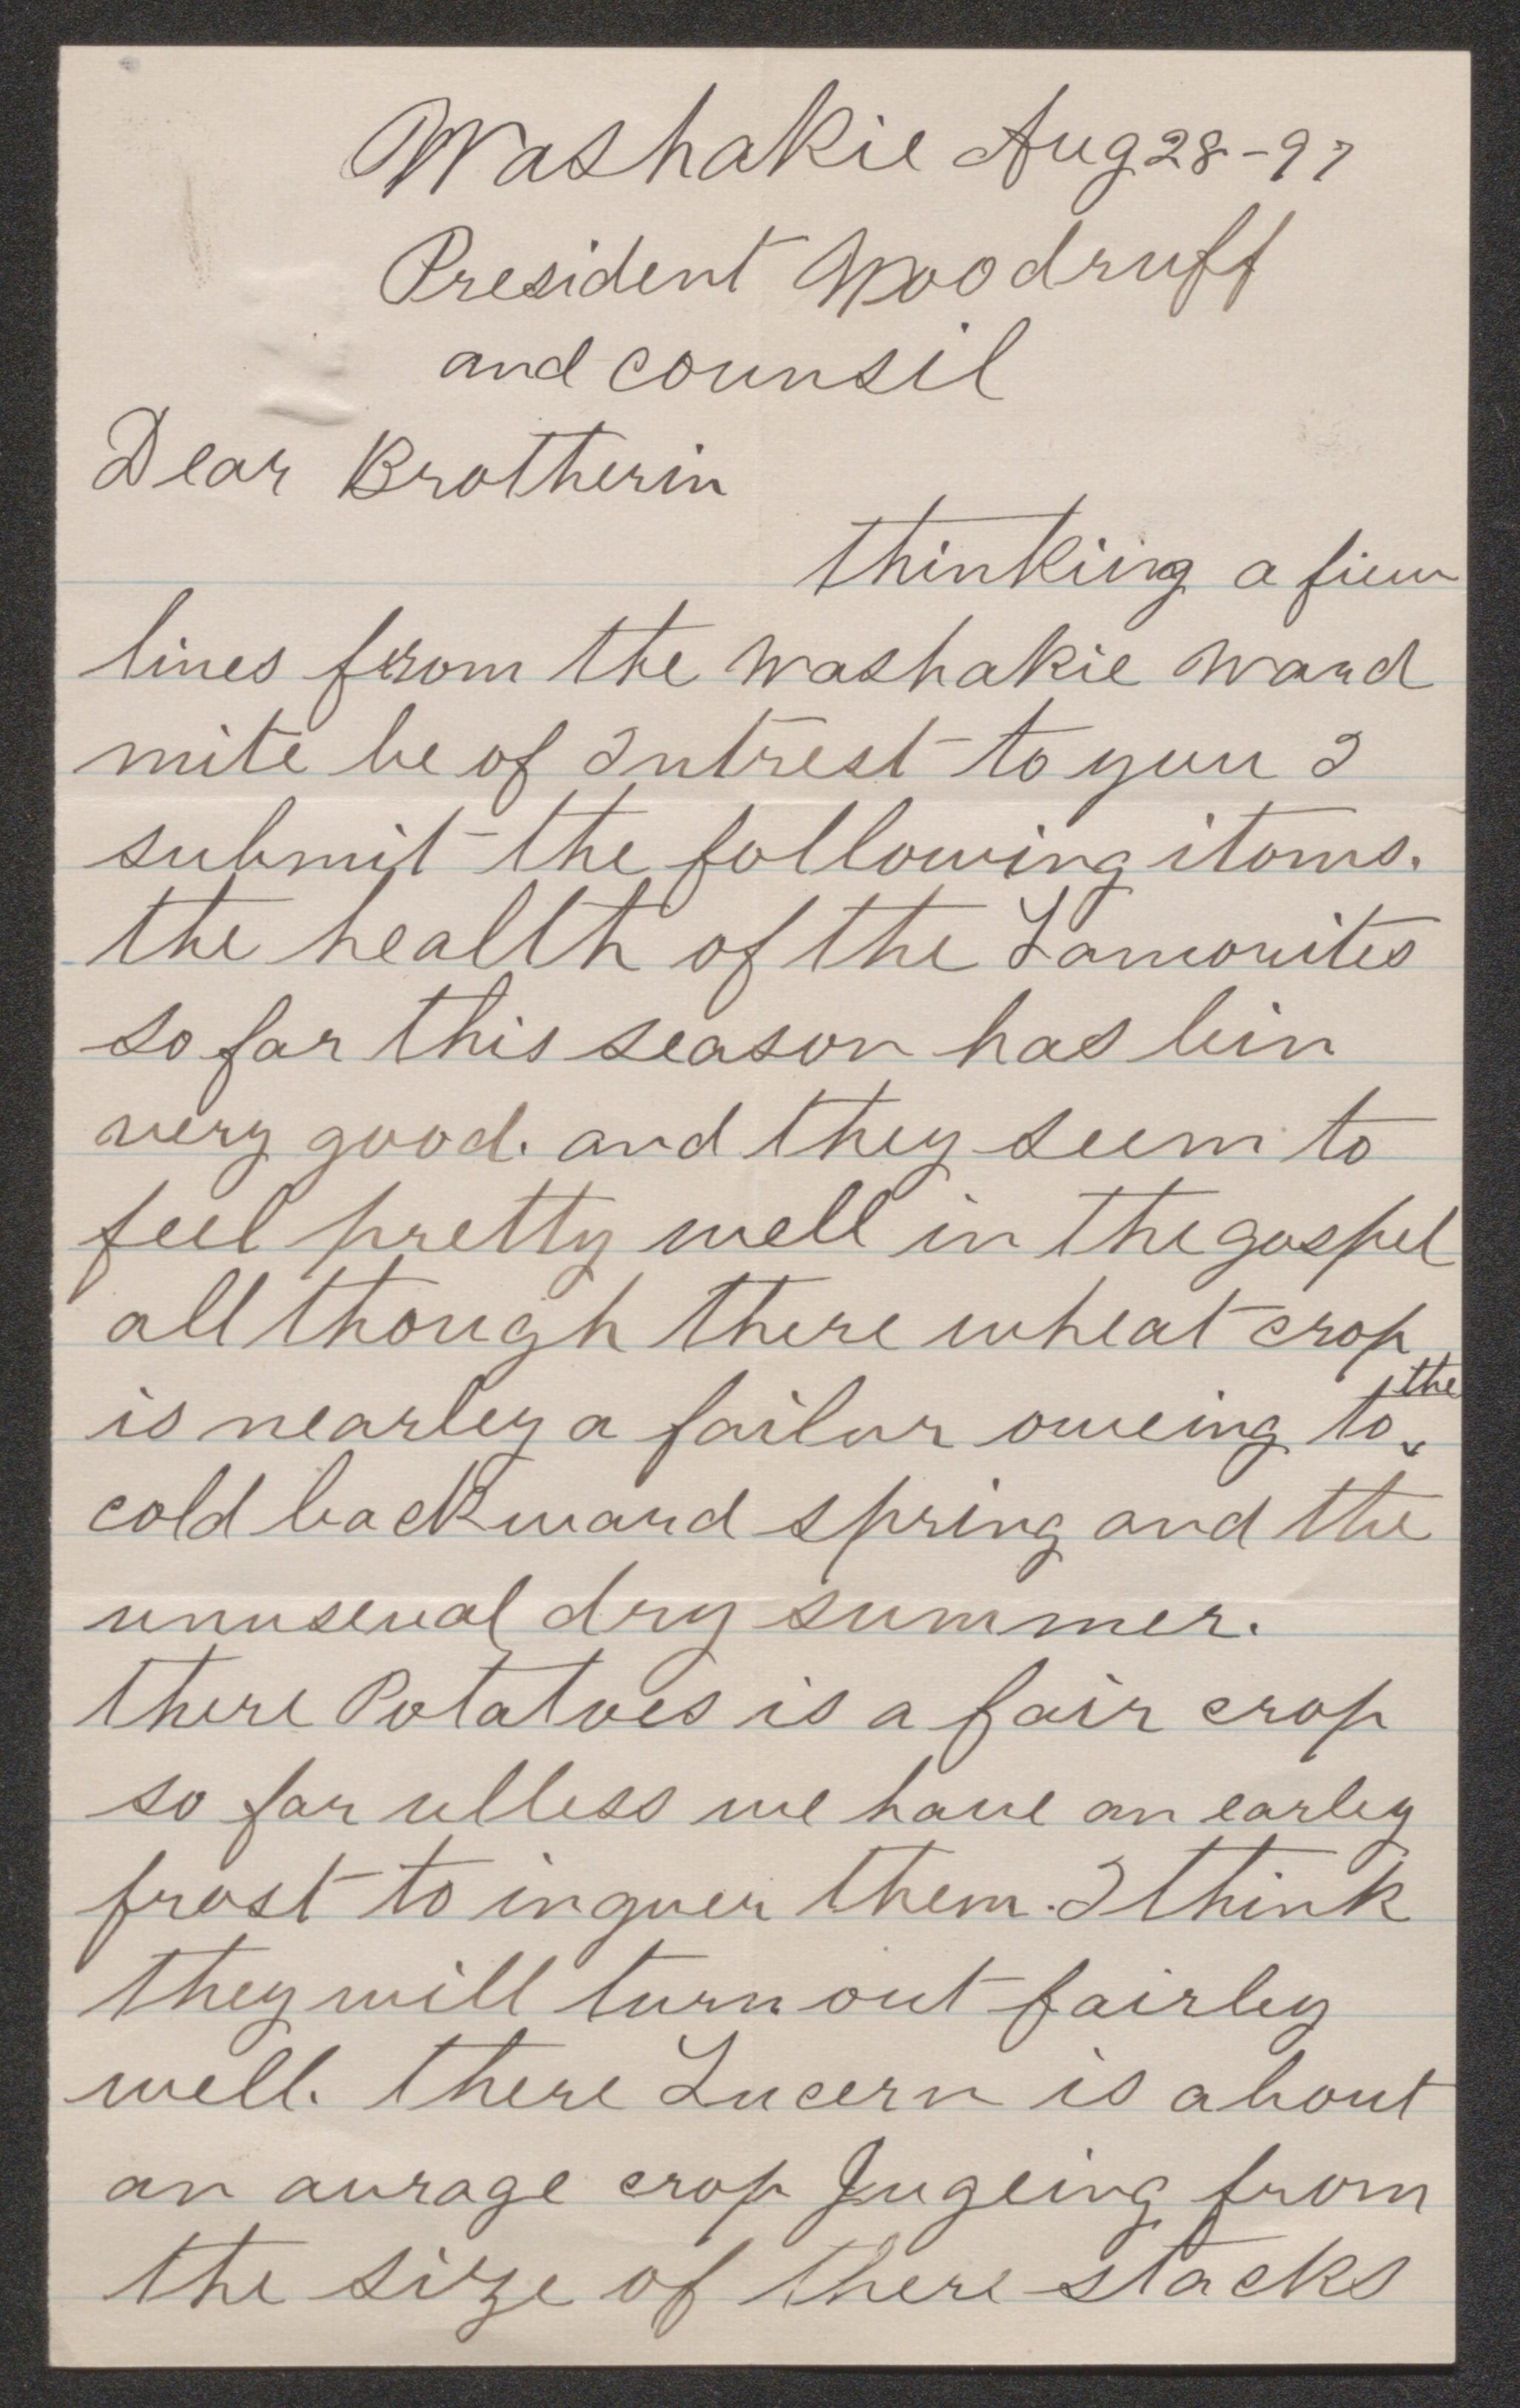 Washakie Aug 28-97
President Woodruff
and counsil
Dear Brotherin
thinkiing a fiew
lines from the Washakie Ward
mite be of Intrest to you I
submit the following itoms.
the health of the Lamonites
so far this season has bin
very good. and they seem to
feel pretty well in the gospel
all though there wheat crop
is nearley a failur oweing to the
cold backward spring and the
unuseual dry summer.
there Potatoes is a fair crop
so far ulless we have an earley
frost to inguer them. I think
they will turn out fairley
well. there Lucern is about
an aurage crop Jugeing from
the size of there stacks